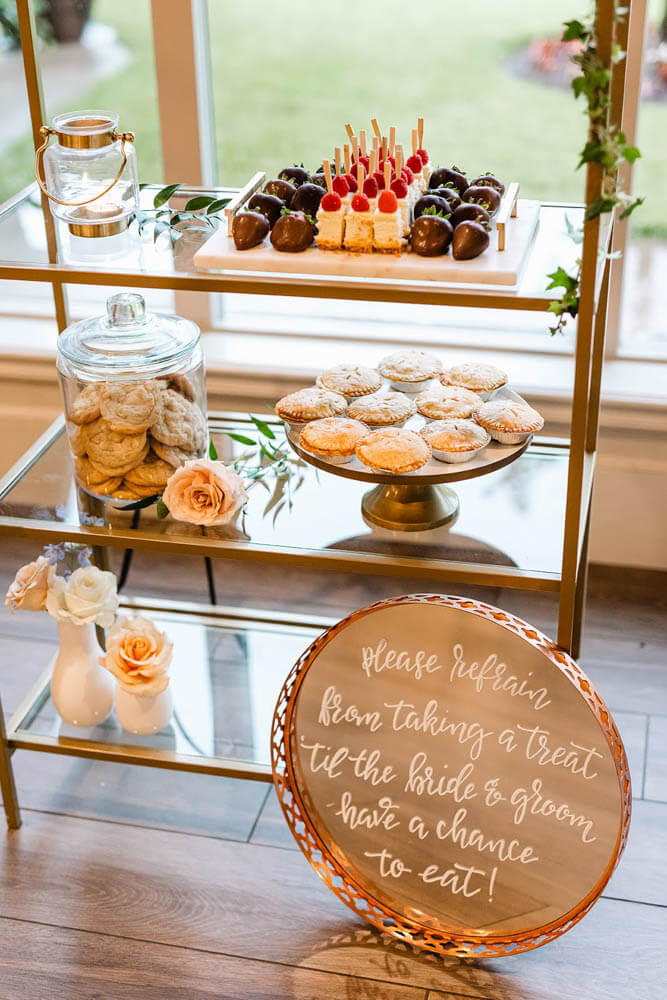 please refrain
from taking a treat
'til the bride & groom
have a chance
to eat!